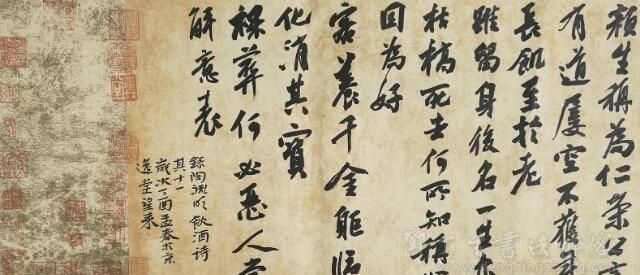 顏生稱為仁榮公言
有道屢空不獲
長飢至於老
雖留身後名一生亦
枯槁死去何所知稱
固為好
客養千金軀臨
化消其寶
裸葬何必惡人當
解意表
錄陶淵明飲酒詩
其十一
歲次丁酉孟春於京
逸堂